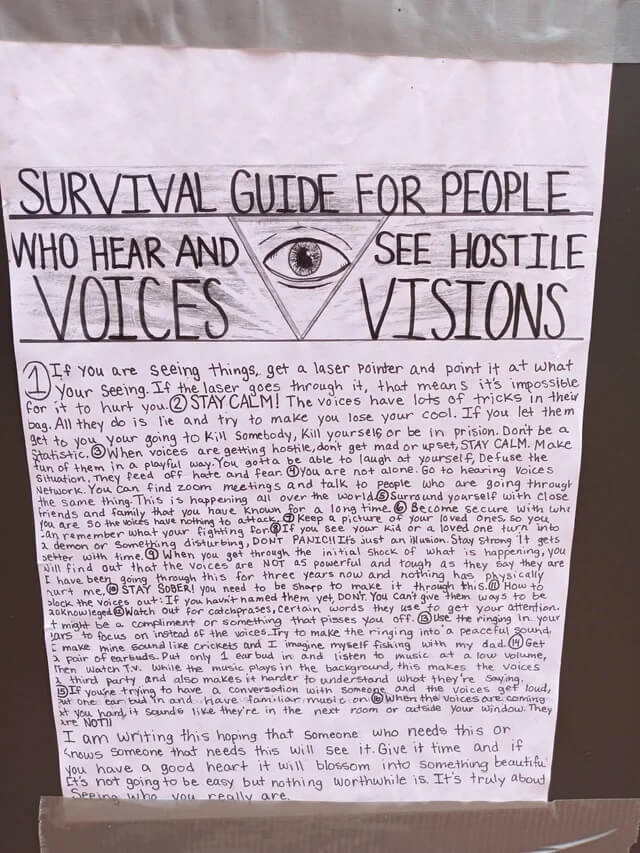 SURVIVAL GUIDE FOR PEOPLE
WHO HEAR AND SEE HOSTILE
VOICES VISIONS
1 If you are seeing things, get a laser pointer and point it at what
your seeing. If the laser goes through it, that means it's impossible
for it to hurt you. 2 STAY CALM! The voices have lots of tricks in their
bag. All they do is lie and try to make you lose your cool. If you let them
get to you your going to Kill Somebody, Kill yourself or be in prision. Don't be a
Statistic. 3 When voices are getting hostile, dont get mad or upset, STAY CALM. Make
fun of them in a playful way. You gotta be able to laugh at yourself, Defuse the
situation. They feed off hate and fear. 4 You are not alone. Go to hearing Voices
Network. You can find zoom meetings and talk to people who are going through
the same thing. This is happening all over the world. 5 Surround yourself with close
friends and family that you have known for a long time. 6 Become secure with who
you are so the voices have nothing to attack. 7 Keep a picture of your loved ones so you
can remember what your fighting for. 8 If you see your kid or a loved one turn into
a demon or something disturbing, DONT PANIC!! It's just an illusion. Stay strong It gets
better with time. 9 When you get through the initial shock of what is happening, you
will find out that the voices are NOT as powerful and tough as they say they are
I have been going through this for three years now and nothing has physically
hurt me. 10 STAY SOBER! you need to be sharp to make it through this. 11 How to
block the voices out: If you havn't named them yet, DON'T. You Can't give them ways to be
acknowleged 12 Watch out for catchprases, certain words they use to get your attention.
It might be a compliment or something that pisses you off. 13 Use the ringing in your
ears to focus on instead of the voices. Try to make the ringing into a peaceful sound,
I make mine sound like crickets and I imagine myself fishing with my dad. 14 Get
a pair of earbuds. Put only 1 earbud in and listen to music at a low volume,
Then watch T.V. While the music plays in the background, this makes the voices
a third party and also makes it harder to understand what they're saying.
15 If you're trying to have a conversation with someone and the voices get loud,
put one ear bud in and have familiar music on 16 When the voices are coming
at you hard, it sounds like they're in the next room or outside your window. They
are NOT!!
I am writing this hoping that someone who needs this or
knows someone that needs this will see it. Give it time and if
you have a good heart it will blossom into something beautiful
It's not going to be easy but nothing worthwhile is. It's truly about
Seeing who you really are.